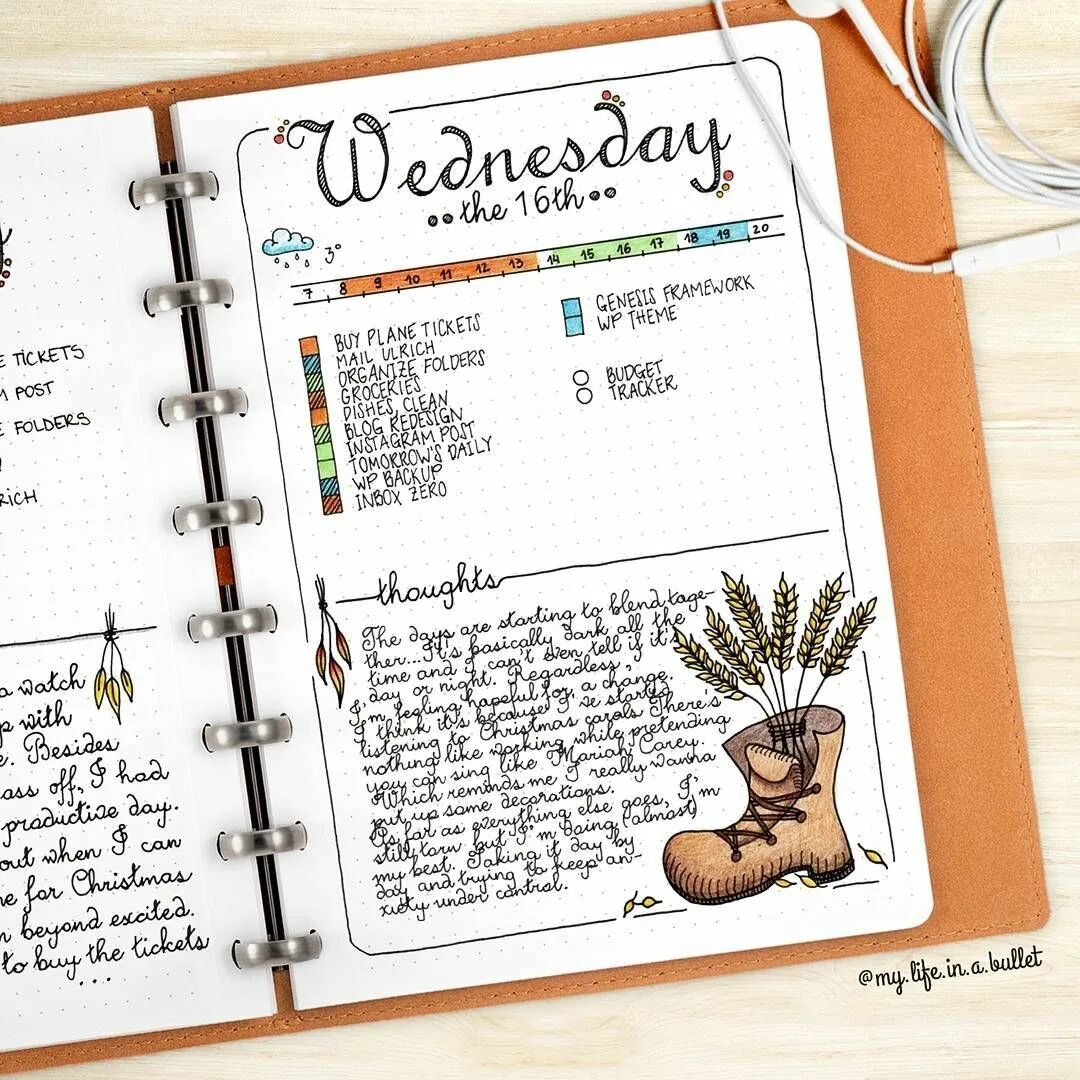 E TICKETS
M POST
E FOLDERS
RICH
a watch
p with
e. Besides
ass off, I had
productive day.
out when I can
me for Christmas
m beyond excited.
to buy the tickets
...
Wednesday
the 16th
3°
7 8 9 10 11 12 13 14 15 16 17 18 19 20
BUY PLANE TICKETS
MAIL ULRICH
ORGANIZE FOLDERS
GROCERIES
DISHES, CLEAN
BLOG REDESIGN
INSTAGRAM POST
TOMORROW'S DAILY
WP BACKUP
INBOX ZERO
GENESIS FRAMEWORK
WP THEME
BUDGET
TRACKER
thoughts
The days are starting to blend toge-
ther... It's basically dark all the
time and I can't even tell if it's
day or night. Regardless,
I'm feeling hopeful for a change.
I think it's because I've started
listening to Christmas carols. There's
nothing like working while pretending
you can sing like Mariah Carey.
Which reminds me I really wanna
put up some decorations.
As far as everything else goes, I'm
still torn but I'm doing (almost)
my best. Taking it day by
day and trying to keep an-
xiety under control.
@my.life.in.a.bullet